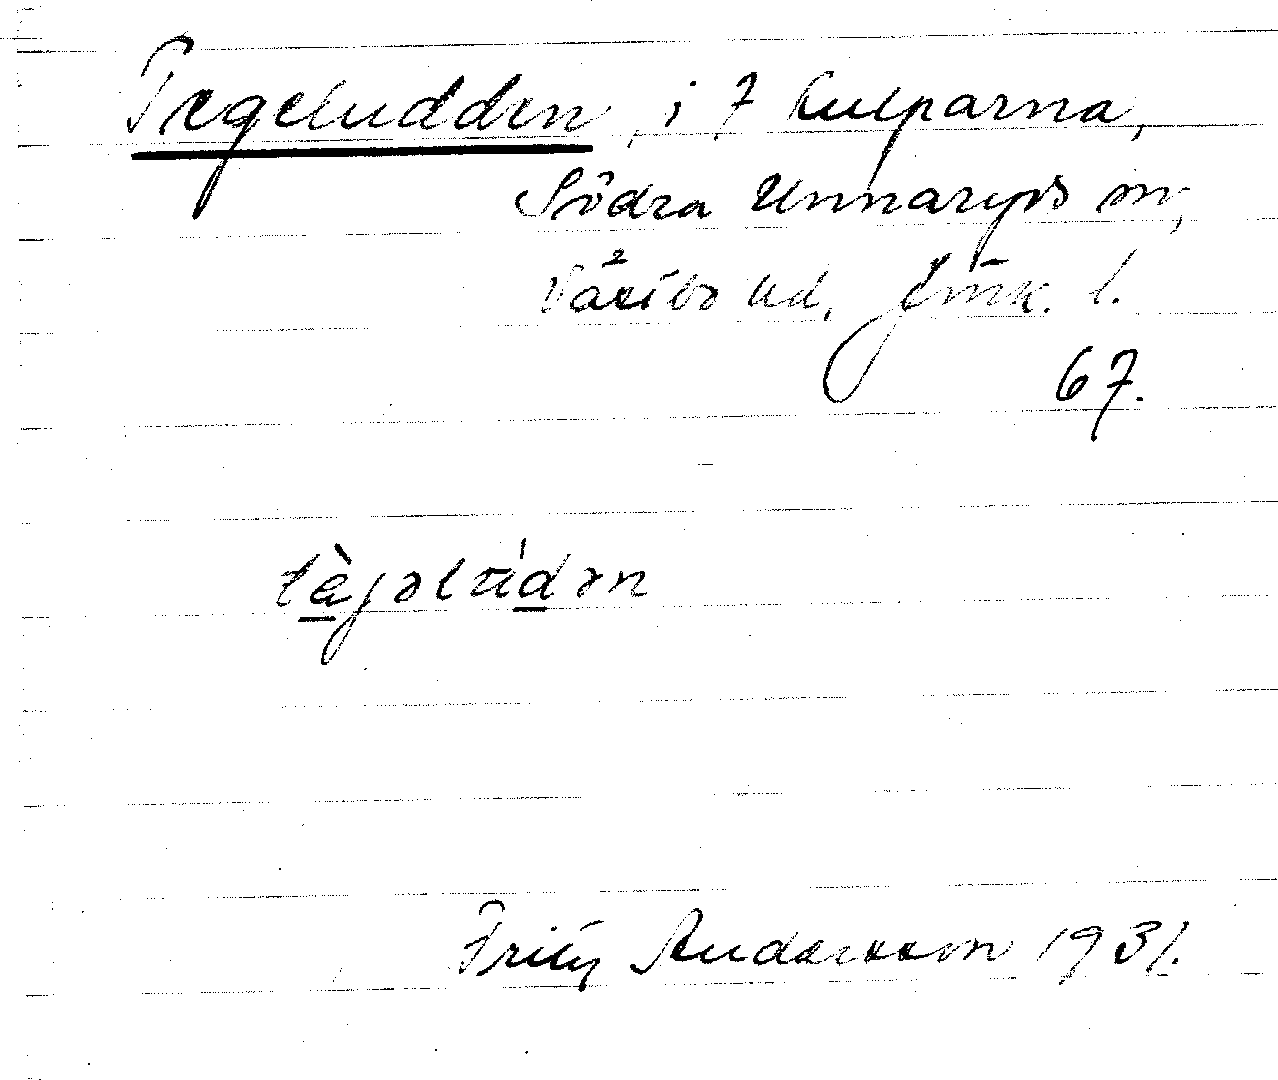 Tegeludden, i 7 Kulparna,
Södra Unnaryds sn,
Västbo hd, Jönk. l.
67.
tàjəlùdən
Fritz Andersson 1931.